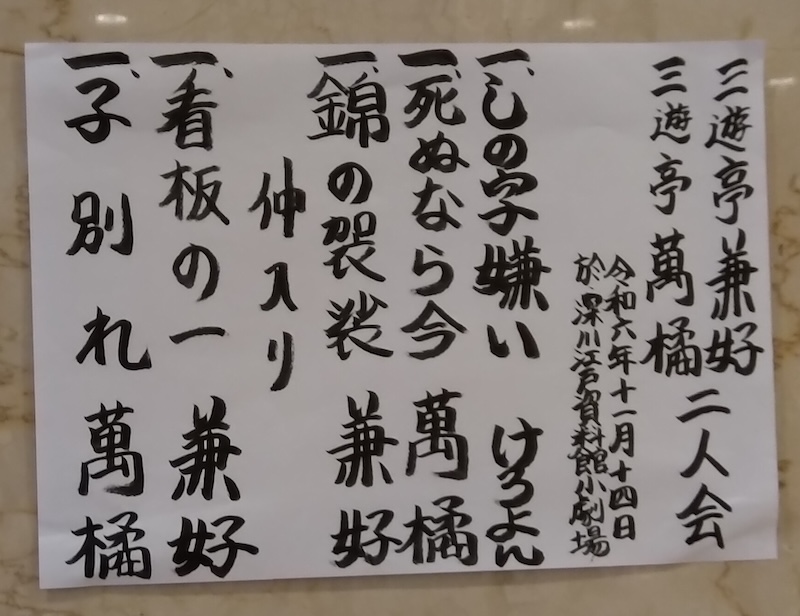 三遊亭兼好
三遊亭萬橘
二人会
令和六年十一月十四日
於・深川江戸資料館小劇場
一、しの字嫌い けろよん
一、死ぬなら今 萬橘
一、錦の袈裟 兼好
仲入り
一、看板の一 兼好
一、子別れ 萬橘